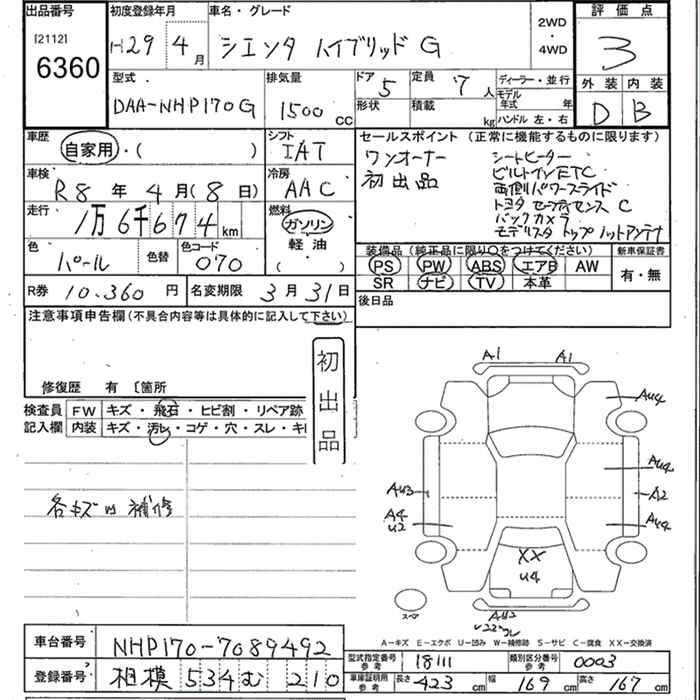 出品番号
[2112]
6360
初度登録年月
H29 4月
車名・グレード
シエンタ ハイブリッド G
2WD
・
4WD
評価点
3
外装 内装
D B
型式
DAA-NHP170G
排気量
1500 cc
ドア
5
定員
7人
ディーラー・並行
モデル年式 年
形状
積載 kg
ハンドル 左・右
車歴
自家用・( )
シフト
IAT
車検
R8年4月(8日)
冷房
AAC
走行
1万6千674km
燃料
ガソリン
軽油
( )
色
パール
色替
色コード
070
R券 10.360円
名変期限 3月31日
セールスポイント(正常に機能するものに限ります)
ワンオーナー
初出品
シートヒーター
ビルトインETC
両側パワースライド
トヨタセーフティセンス C
バックカメラ
モデリスタ トップノットアンテナ
装備品(純正品に限り○をつけてください)
新車保証書
PS PW ABS エアB AW
SR ナビ TV 本革
有・無
後日品
注意事項申告欄(不具合内容等は具体的に記入して下さい)
修復歴 有 〔箇所
初出品
検査員記入欄
FW キズ・飛石・ヒビ割・リペア跡
内装 キズ・汚レ・コゲ・穴・スレ・キ
各キズ凹補修
A1 A1
AU4
AU4
A2
AU4
AU3
A4
U2
XX
U4
スペア
A-キズ E-エクボ U-凹み W-補修跡 S-サビ C-腐食 XX-交換済
車台番号 NHP170-7089492
登録番号 相模 534 む 210
型式指定番号 参考 18111
類別区分番号 参考 0003
車庫証明用 参考 長さ 423cm 幅 169cm 高さ 167cm